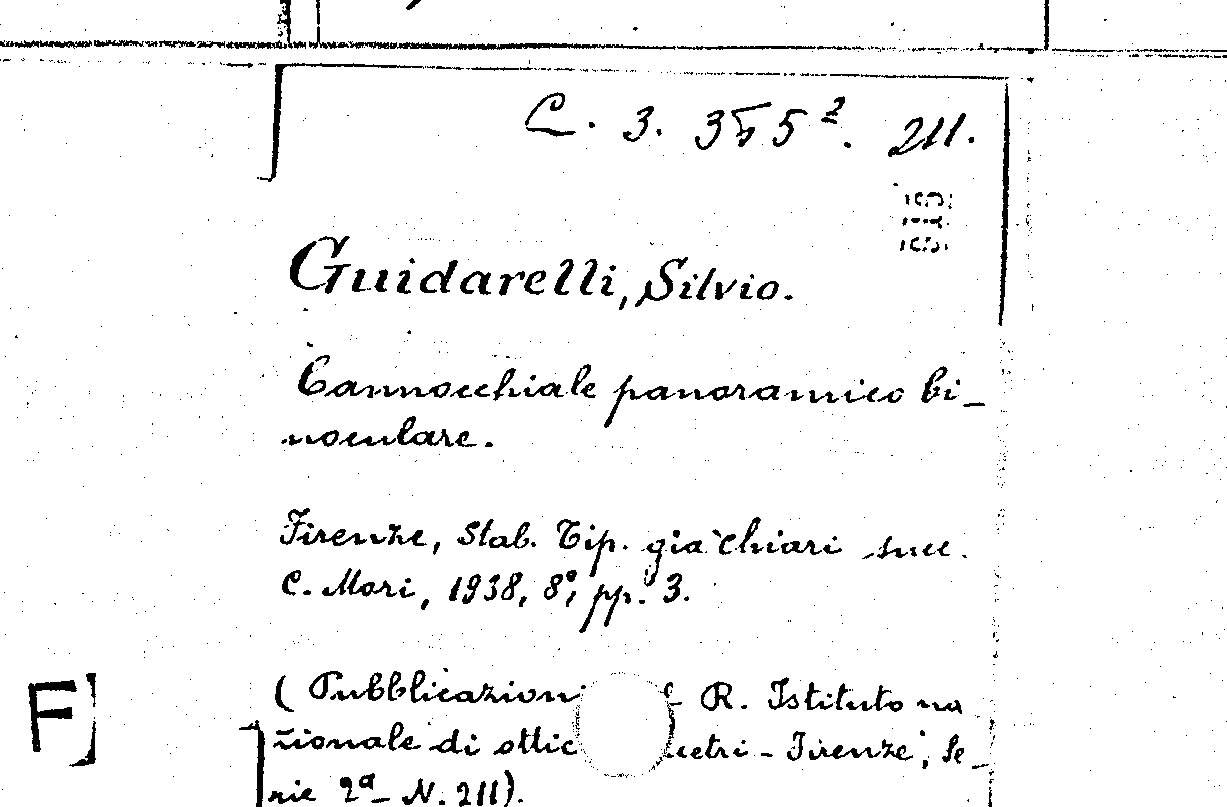 C. 3. 355². 211.
Guidarelli, Silvio.
Cannocchiale panoramico bi_
noculare.
Firenze, Stab. Tip. già Chiari succ.
C. Mori, 1938, 8°, pp. 3.
( Pubblicazioni R. Istituto na
zionale di ottic Arcetri - Firenze, Se_
rie 2ª - N. 211).
F]